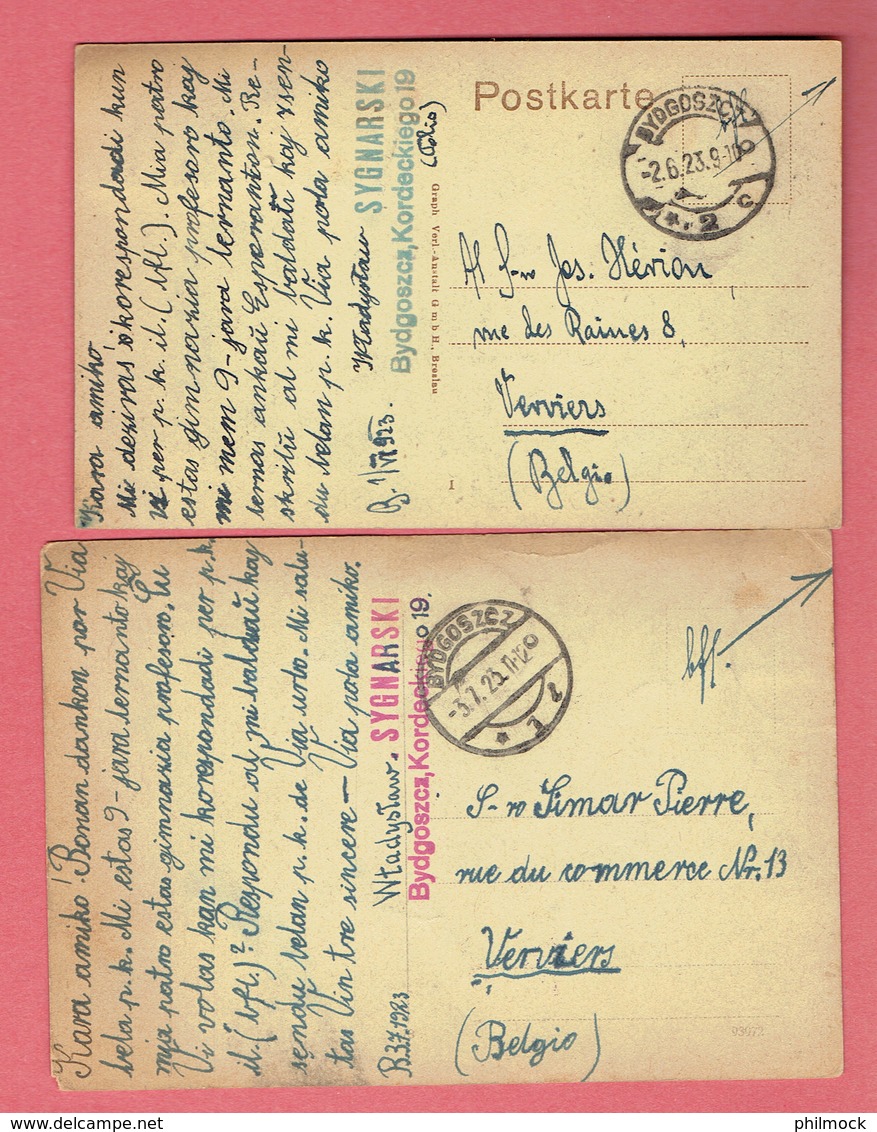 Kara amiko!
Mi deziras korespondadi kun
Vi per p. k. il. (bfl.). Mia patro
estas gimnazia profesoro kaj
mi mem 9-jara lernanto. Mi
lernas ankaŭ Esperanton. Re-
skribu al mi baldaŭ kaj rsen-
du belan p. k. Via pola amiko
Władysław SYGNARSKI
Bydgoszcz, Kordeckiego 19
(Polio)
B. 1/VI 923.
Graph. Verl.-Anstalt G m b H., Breslau
Postkarte
BYDGOSZCZ
-2.6.23.9-10
* 2 c
Al S-ro Jos. Hérion
rue des Raines 8,
Verviers
(Belgio)
I
Kara amiko! Bonan dankon por Via
bela p. k. Mi estas 9-jara lernanto kaj
mia patro estas gimnazia profesoro. Ĉu
Vi volas kan mi korespondadi per p. k.
il. (bfl.)? Respondu al mi baldaŭ kaj
sendu belan p. k. de Via urbo. Mi salu-
tas Vin tre sincere – Via pola amiko.
Władysław. SYGNARSKI
Bydgoszcz, Kordeckiego 19.
B. 3.7.1923
BYDGOSZCZ
-3.7.23.11-12
bfl.
S-ro Simar Pierre,
rue du commerce Nr. 13
Verviers
(Belgio)
93972
philmock